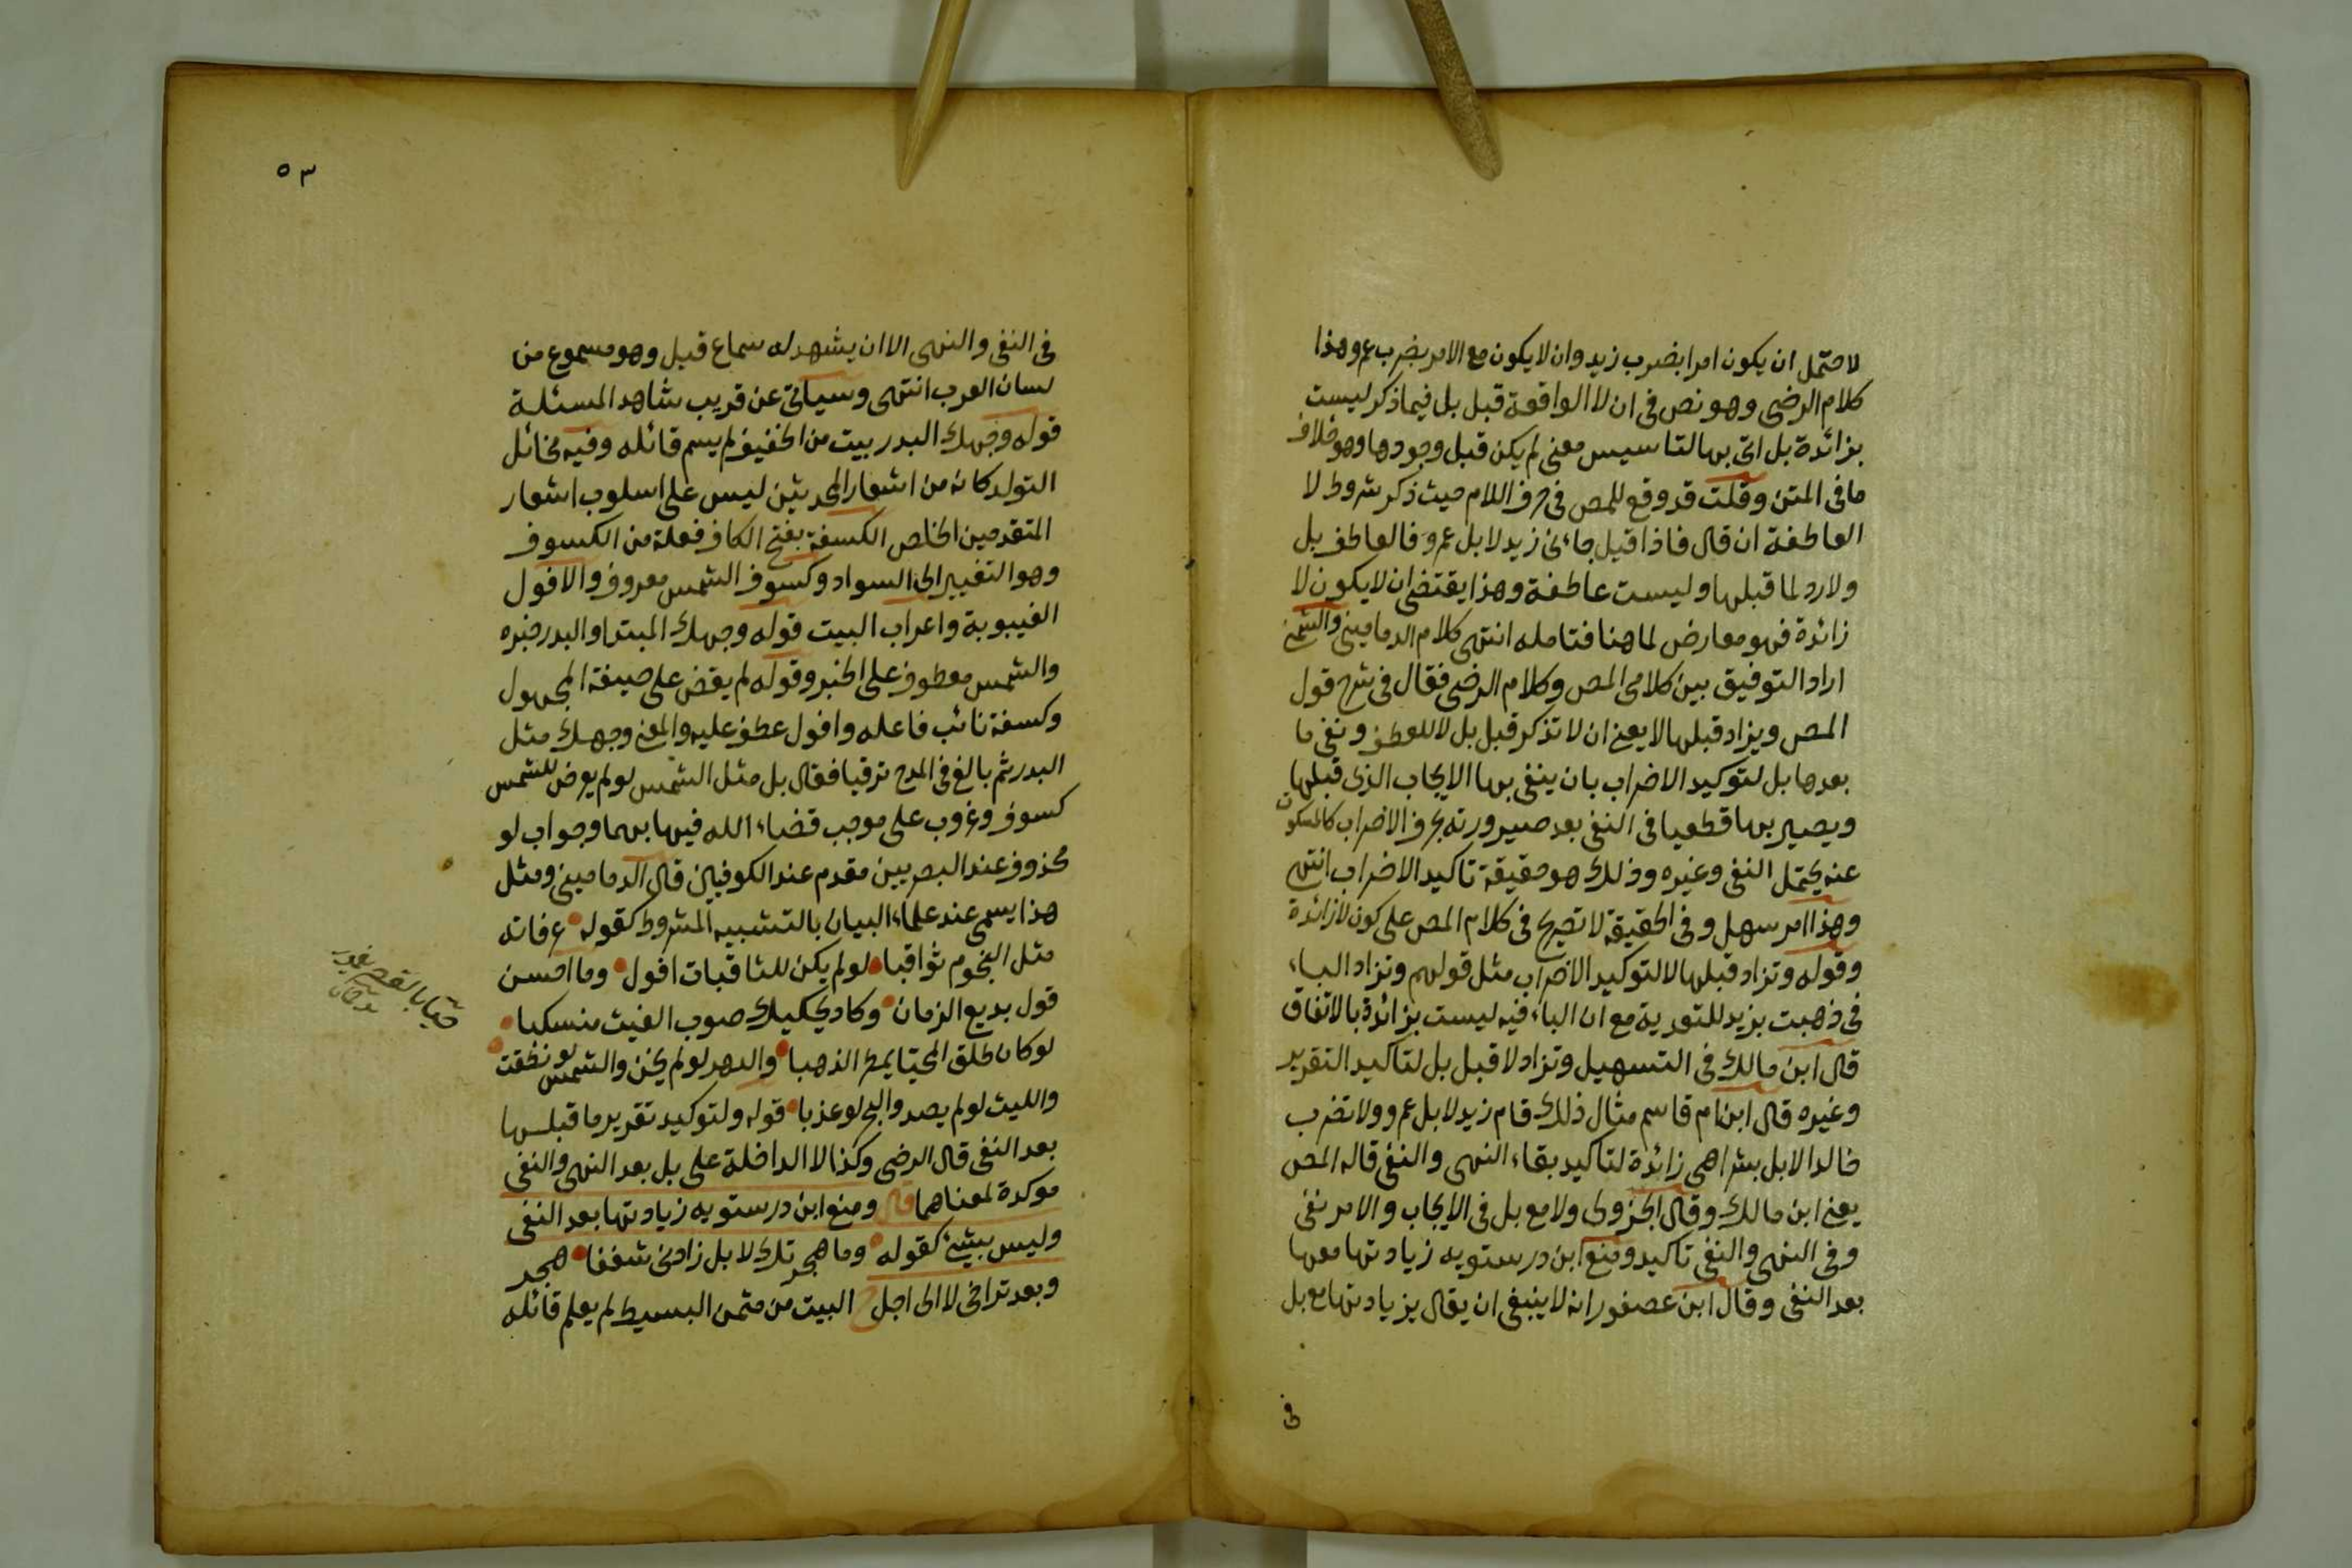 لاحتمل ان يكون امرا بضرب زيد وان لا يكون مع الامر بضرب عمرو هذا
كلام الرضى وهو نص فى ان لا الواقعة قبل بل فيما ذكر ليست
بزائدة بل اتى بها لتاسيس معنى لم يكن قبل وجودها وهو خلاف
ما فى المتن وقلت قد وقع للمص فى حرف اللام حيث ذكر شروط لا
العاطفة ان قال فاذا قيل جاءنى زيد لا بل عمرو فالعاطف بل
ولا رد لما قبلها وليست عاطفة وهذا يقتضى ان لا يكون لا
زائدة فهو معارض لما هنا فتامله انتهى كلام الدمامينى والشمنى
اراد التوفيق بين كلامى المص وكلام الرضى فقال فى شرح قول
المص ويزاد قبلها لا يعنى ان لا تذكر قبل بل لا للعطف ونفى ما
بعدها بل لتوكيد الاضراب بان ينفى بها الايجاب الذى قبلها
ويصير بها قطعيا فى النفى بعد صيرورته بحرف الاضراب كالمسكوت
عنه يحتمل النفى وغيره وذلك هو حقيقة تاكيد الاضراب انتهى
وهذا امر سهل وفى الحقيقة لا تصريح فى كلام المص على كون لا زائدة
وقوله وتزاد قبلها لا لتوكيد الاضراب مثل قولهم وتزاد الباء
فى ذهبت بزيد للتعدية مع ان الباء فيه ليست بزائدة بالاتفاق
قال ابن مالك فى التسهيل وتزاد لا قبل بل لتاكيد التقرير
وغيره قال ابن ام قاسم مثال ذلك قام زيد لا بل عمرو ولا تضرب
خالدا لا بل بشرا هى زائدة لتاكيد بقاء النهى والنفى قاله المص
يعنى ابن مالك وقال الجزولى ولا مع بل فى الايجاب والامر نفى
وفى النهى والنفى تاكيد ومنع ابن درستويه زيادتها معها
بعد النفى وقال ابن عصفور انه لا ينبغى ان يقال بزيادتها مع بل
فى
٥٣
فى النفى والنهى الا ان يشهد له سماع قبل وهو مسموع من
لسان العرب انتهى وسياتى عن قريب شاهد المسئلة
قوله وجهك البدر بيت من الخفيف لم يسم قائله وفيه مخائل
التولد كانه من اشعار المحدثين ليس على اسلوب اشعار
المتقدمين الخلص الكسفة بفتح الكاف فعلة من الكسوف
وهو التغيير الى السواد وكسوف الشمس معروف والافول
الغيبوبة واعراب البيت قوله وجهك المبتدا والبدر خبره
والشمس معطوف على الخبر وقوله لم يقض على صيغة المجهول
وكسفة نائب فاعله وافول عطف عليه والمعنى وجهك مثل
البدر ثم بالغ فى المدح ترقيا فقال بل مثل الشمس لو لم يعرض للشمس
كسوف وغروب على موجب قضاء الله فيها بهما وجواب لو
محذوف عند البصريين مقدم عند الكوفيين قال الدمامينى ومثل
هذا يسمى عند علماء البيان بالتشبيه المشروط كقوله عزماته
مثل النجوم ثواقبا لو لم يكن للثاقبات افول وما احسن
قول بديع الزمان وكاد يحكيك صوب الغيث منسكبا
لو كان طلق المحيا يمطر الذهبا والدهر لو لم يخن والشمس لو نطقت
والليث لو لم يصد والبحر لو عذبا قوله ولتوكيد تقرير ما قبلها
بعد النفى قال الرضى وكذا لا الداخلة على بل بعد النهى والنفى
موكدة لمعناهما قال ومنع ابن درستويه زيادتها بعد النفى
وليس بشئ كقوله وما هجرتك لا بل زادنى شغفا هجر
وبعد تراخى لا الى اجل ح البيت من مثمن البسيط لم يعلم قائله